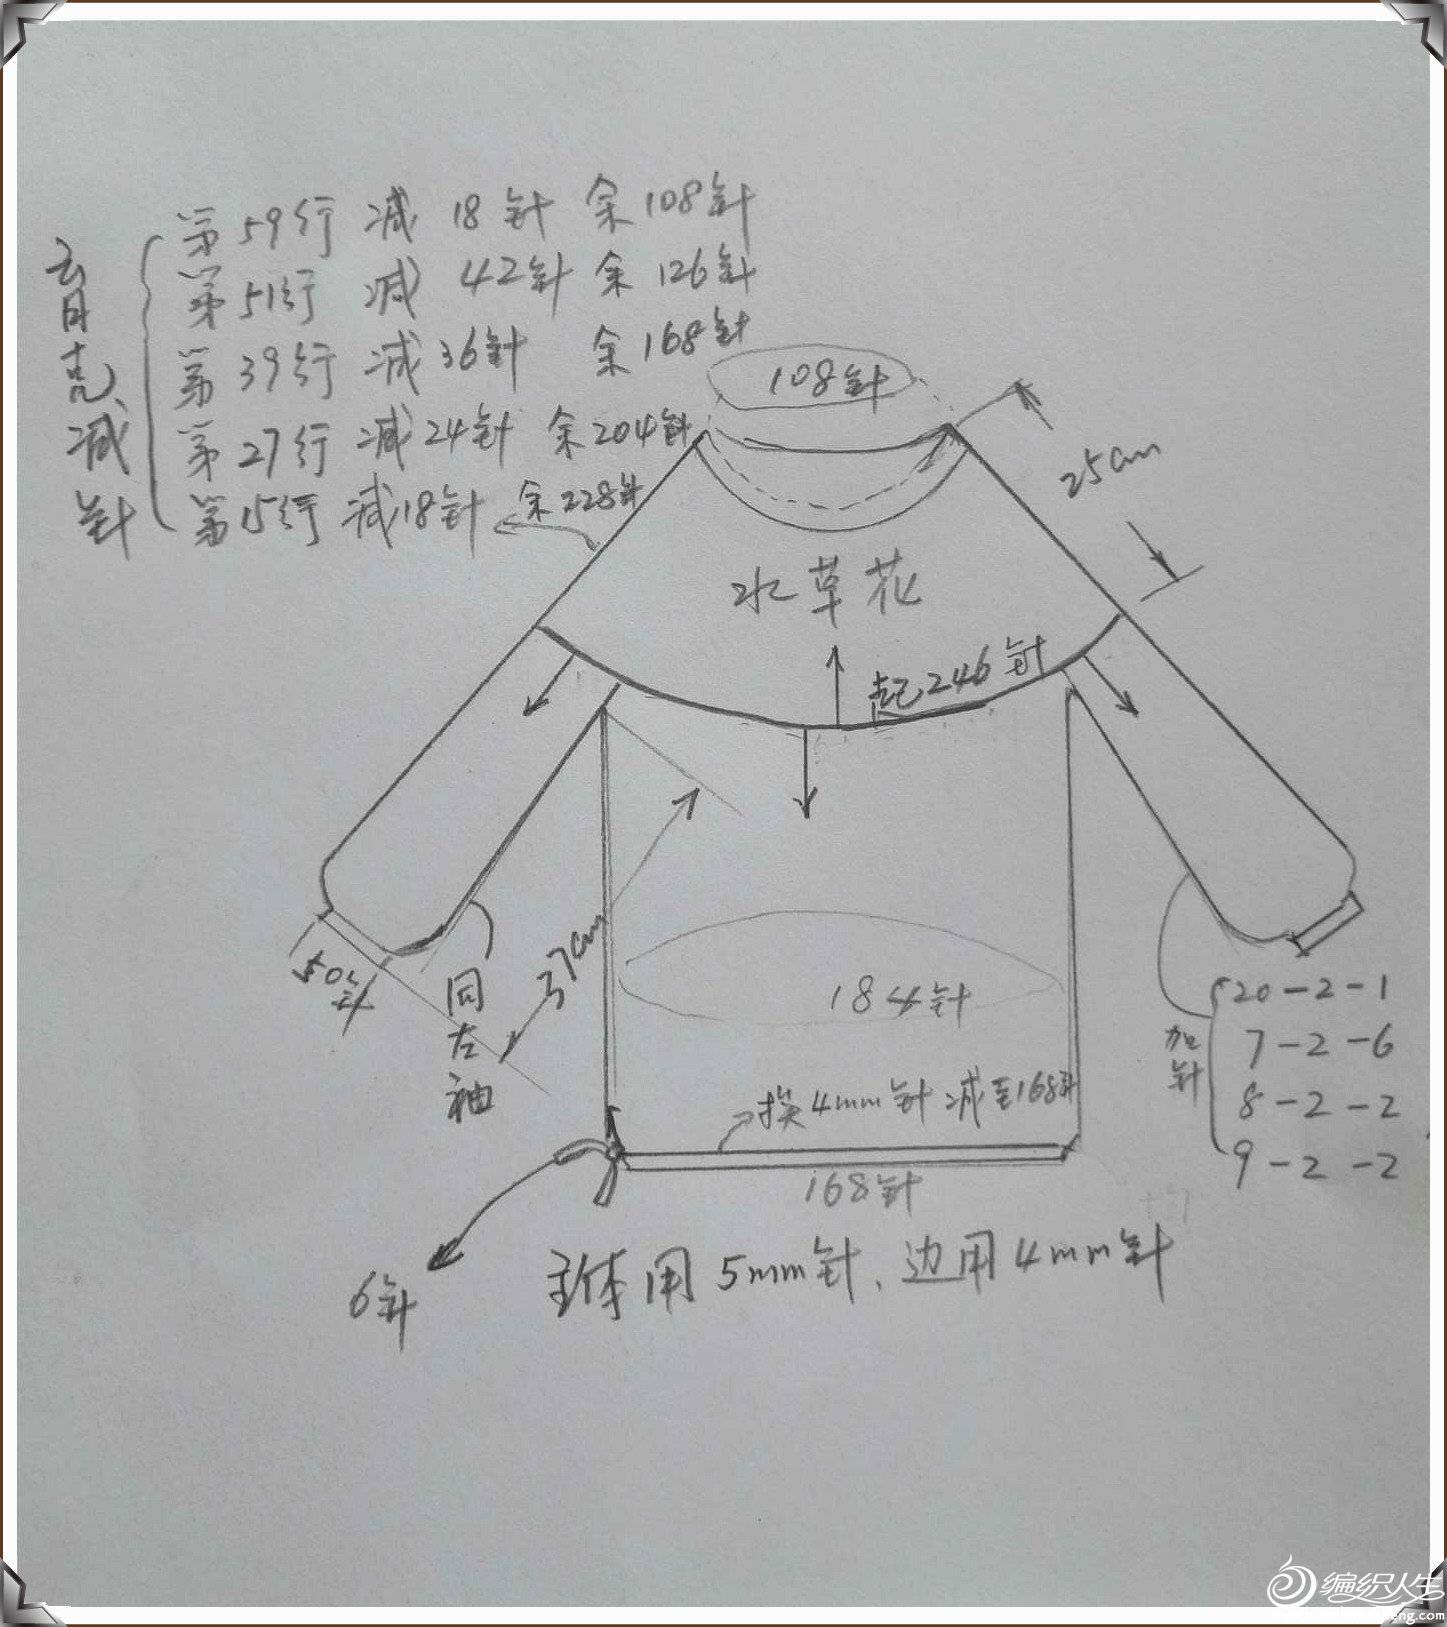 第59行 减 18针 余108针
第51行 减 42针 余 126针
第39行 减36针 余168针
第27行 减24针 余204针
第15行 减18针 余228针
育克减针
108针
25cm
水草花
起246针
37cm
184针
50针
同左袖
加针
20-2-1
7-2-6
8-2-2
9-2-2
换4mm针减至168针
168针
6针
主体用5mm针、边用4mm针
编织人生
eng.com